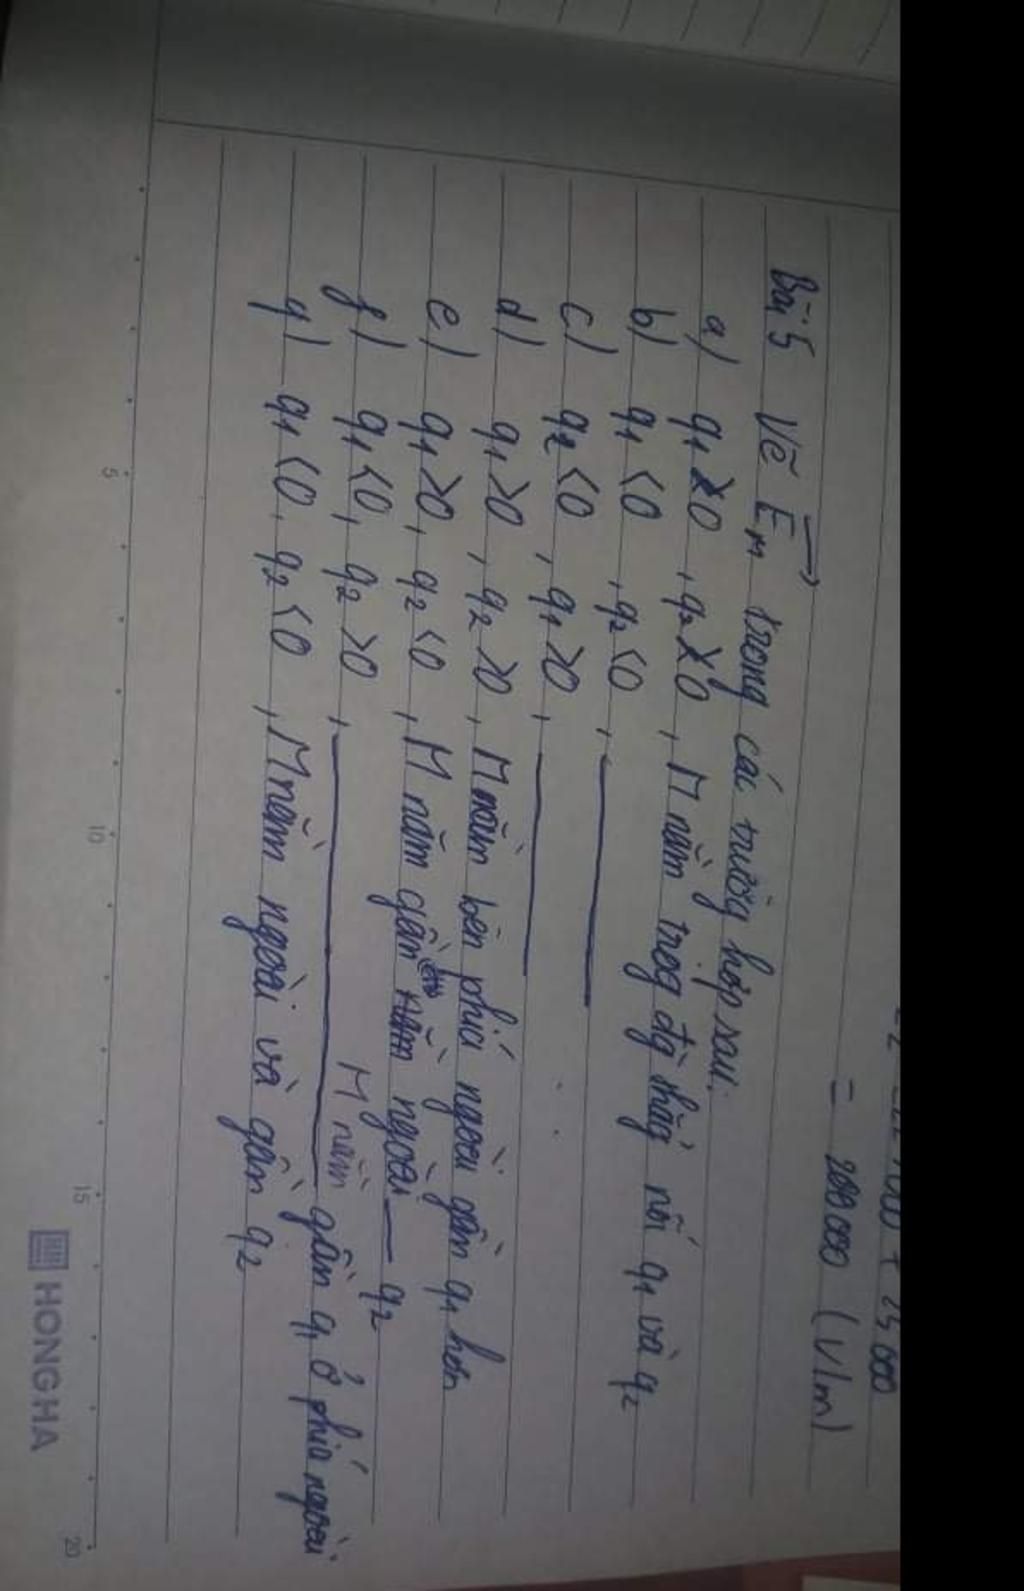 = 288000 (V/m)
Bài 5 Vẽ E_M trong các trường hợp sau:
a) q1 > 0, q2 > 0, M nằm trog đg thẳg nối q1 và q2
b) q1 < 0, q2 < 0, ———
c) q2 < 0, q1 > 0, ———
d) q1 > 0, q2 > 0, M nằm bên phía ngoài gần q1 hơn
e) q1 > 0, q2 < 0, M nằm gần ngoài — q2
f) q1 < 0, q2 > 0, ——— M nằm gần q1 ở phía ngoài
g) q1 < 0, q2 < 0, M nằm ngoài và gần q2
5 10 15 20
HONG HA